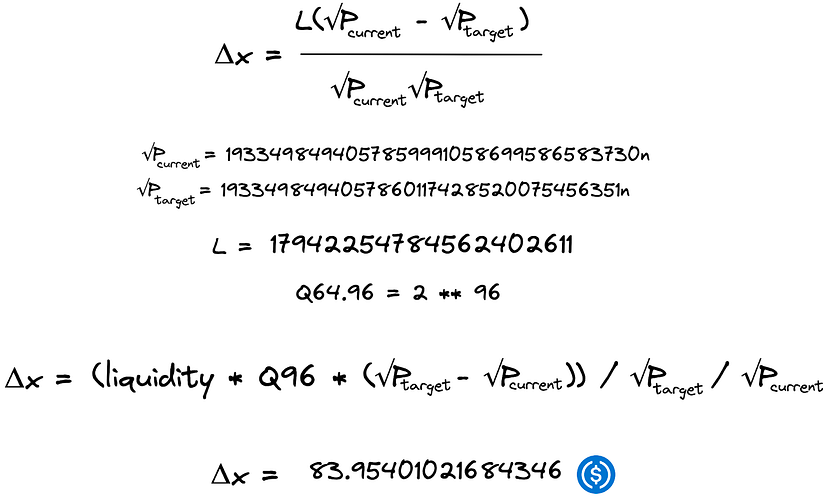 L(√Pcurrent - √Ptarget)
Δx =
√Pcurrent√Ptarget
√Pcurrent = 1933498494057859991058699586583730n
√Ptarget = 1933498494057860117428520075456351n
L = 17942254784562402611
Q64.96 = 2 ** 96
Δx = (liquidity * Q96 * (√Ptarget - √Pcurrent)) / √Ptarget / √Pcurrent
Δx = 83.95401021684346 $